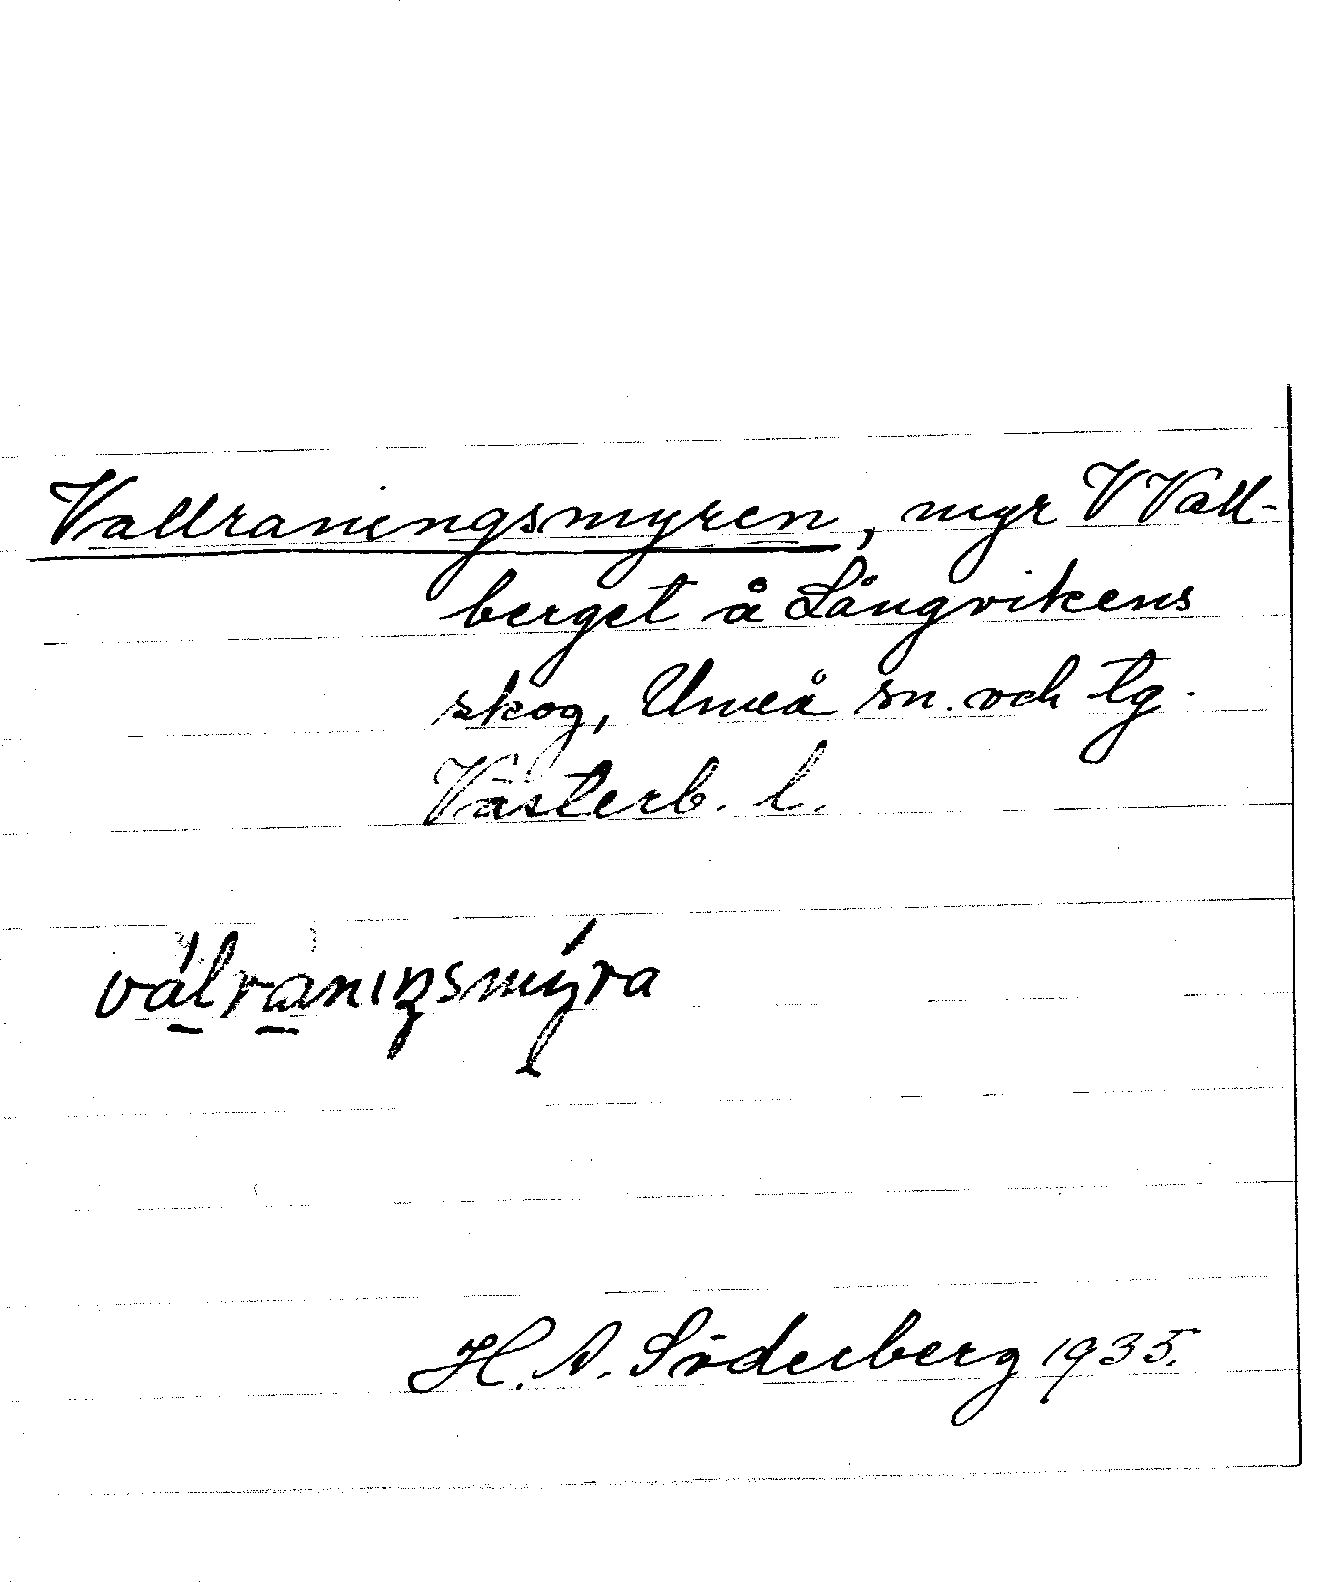 Vallraningsmyren, myr V Vall-
berget å Långvikens
skog, Umeå sn. och tg.
Västerb. l.
vál̠ra̠nıŋsmýra
H. A. Söderberg 1935.